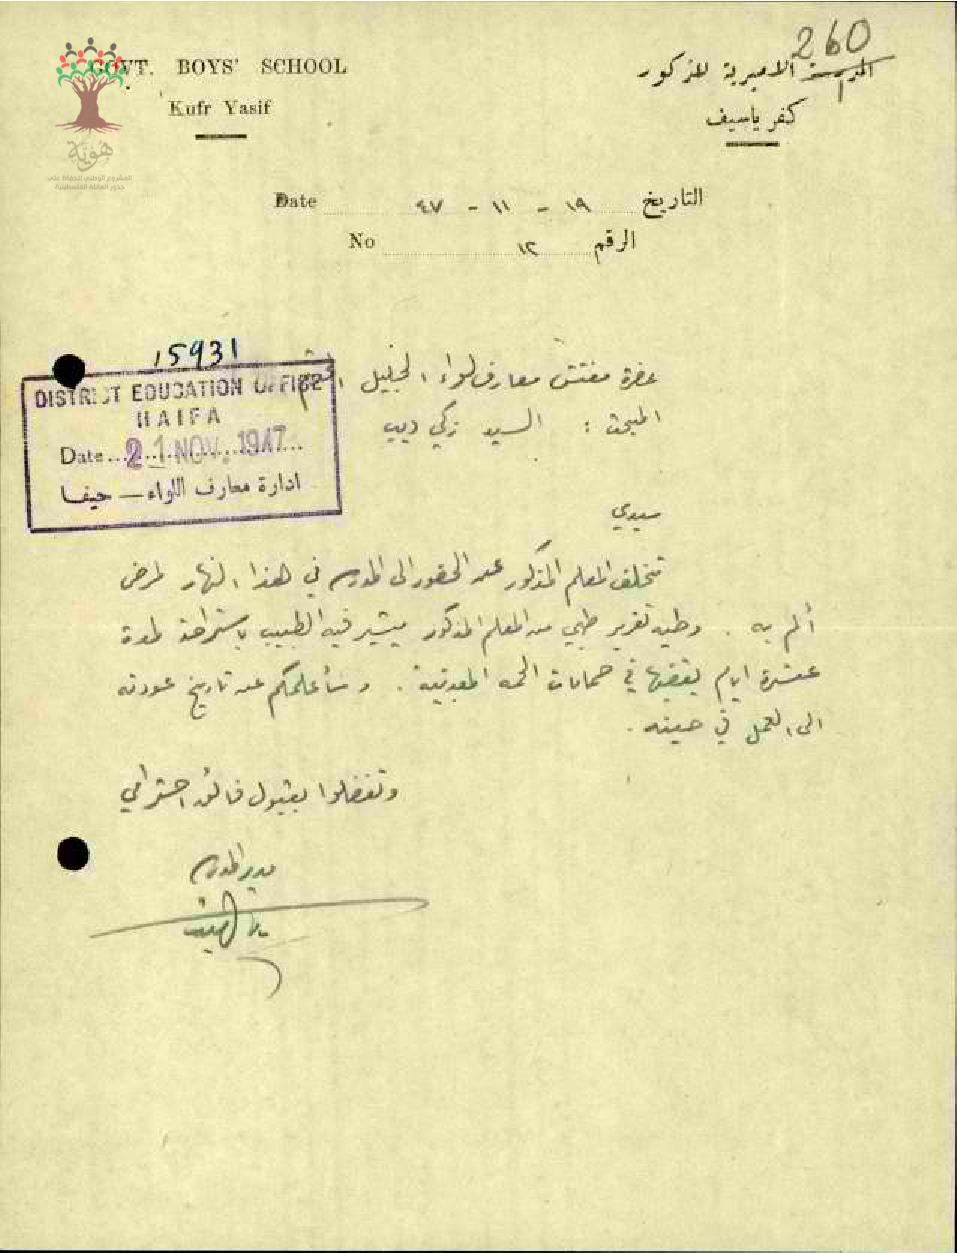 260
GOVT. BOYS' SCHOOL
Kufr Yasif
المدرسة الاميرية للذكور
كفر ياسيف
هوية
المشروع الوطني للحفاظ على
جذور العائلة الفلسطينية
Date ١٩ - ١١ - ٤٧ التاريخ
No ١٢ الرقم
15931
DISTRICT EDUCATION OFFICE
HAIFA
Date 21 NOV. 1947
ادارة معارف اللواء — حيفا
حضرة مفتش معارف لواء الجليل المحترم
المبحث : السيد زكي ديب
سيدي
تخلف المعلم المذكور عن الحضور الى المدرسة في هذا النهار لمرض
ألم به . وطيه تقرير طبي من المعلم المذكور يشير فيه الطبيب باستراحة لمدة
عشرة ايام يقضيها في حمامات الحمه المعدنية . وسأعلمكم عن تاريخ عودته
الى العمل في حينه .
وتفضلوا بقبول فائق احترامي
مدير المدرسة